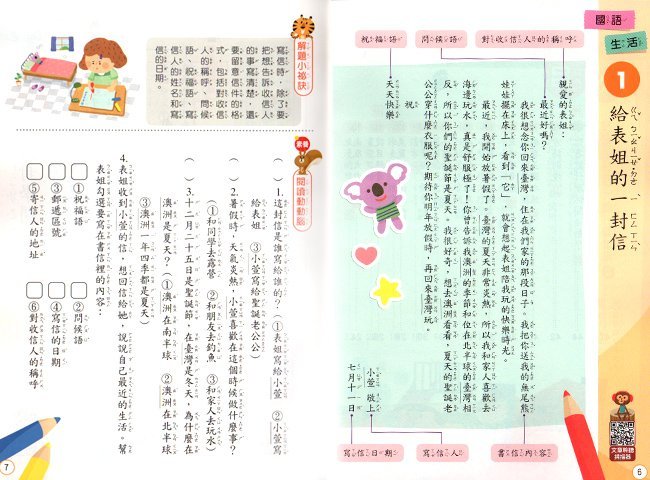 國語
生活
1
給表姐的一封信
對收信人的稱呼
問候語
祝福語
親愛的表姐：
最近好嗎？
我很想念你回來臺灣，住在我們家的那段日子。我把你送我的無尾熊
娃娃擺在床上，看到「它」，就會想起表姐陪我玩的快樂時光。
最近，我開始放暑假了。臺灣的夏天非常炎熱，所以我和家人喜歡去
海邊玩水，真是舒服極了！你曾告訴我澳洲的季節和位在北半球的臺灣相
反，所以你們的聖誕節是夏天。我很好奇，想去澳洲看看，夏天的聖誕老
公公穿什麼衣服呢？期待你明年放假時，再回來臺灣玩。
祝
天天快樂
小萱 敬上
七月十一日
書信內容
寫信人
寫信日期
6
解題小祕訣
寫信時，除了要
把想告訴收信人
的事寫清楚，還
要留意信件的格
式，包括對收信
人的稱呼、問候
語、祝福語、寫
信人的姓名和寫
信的日期。
素養
閱讀動動腦
( )1.這封信是誰寫給誰的？(①表姐寫給小萱 ②小萱寫
給表姐 ③小萱寫給聖誕老公公)
( )2.暑假時，天氣炎熱，小萱喜歡在這個時候做什麼事？
(①和同學去露營 ②和朋友去釣魚 ③和家人去玩水)
( )3.十二月二十五日是聖誕節，在臺灣是冬天，為什麼在
澳洲是夏天？(①澳洲在南半球 ②澳洲在北半球
③澳洲一年四季都是夏天)
4.表姐收到小萱的信，想回信給她，說說自己最近的生活。幫
表姐勾選要寫在書信裡的內容：
①祝福語
②問候語
③郵遞區號
④寫信的日期
⑤寄信人的地址
⑥對收信人的稱呼
7